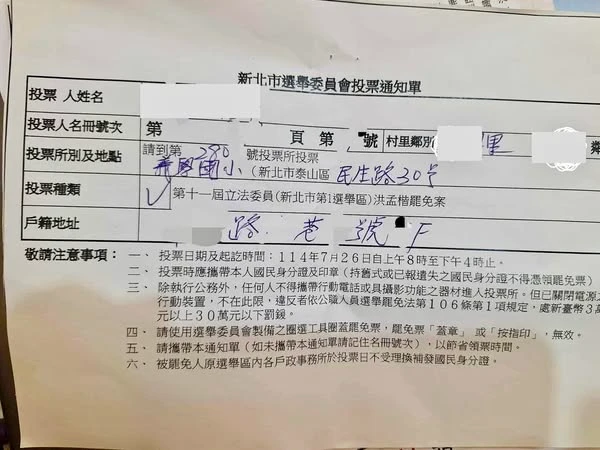 新北市選舉委員會投票通知單
投票人姓名
投票人名冊號次 第 頁第 號 村里鄰別 里 鄰
投票所別及地點 請到第 290 號投票所投票
國小(新北市泰山區 民生路30号
投票種類 ✓ 第十一屆立法委員(新北市第1選舉區)洪孟楷罷免案
戶籍地址 路 巷 號 F
敬請注意事項:一、投票日期及起訖時間:114年7月26日自上午8時至下午4時止。
二、投票時應攜帶本人國民身分證及印章(持舊式或已報遺失之國民身分證不得憑領罷免票)
三、除執行公務外,任何人不得攜帶行動電話或具攝影功能之器材進入投票所。但已關閉電源之
行動裝置,不在此限,違反者依公職人員選舉罷免法第106條第1項規定,處新臺幣3萬
元以上30萬元以下罰鍰。
四、請使用選舉委員會製備之圈選工具圈蓋罷免票,罷免票「蓋章」或「按指印」,無效。
五、請攜帶本通知單(如未攜帶本通知單請記住名冊號次),以節省領票時間。
六、被罷免人原選舉區內各戶政事務所於投票日不受理換補發國民身分證。